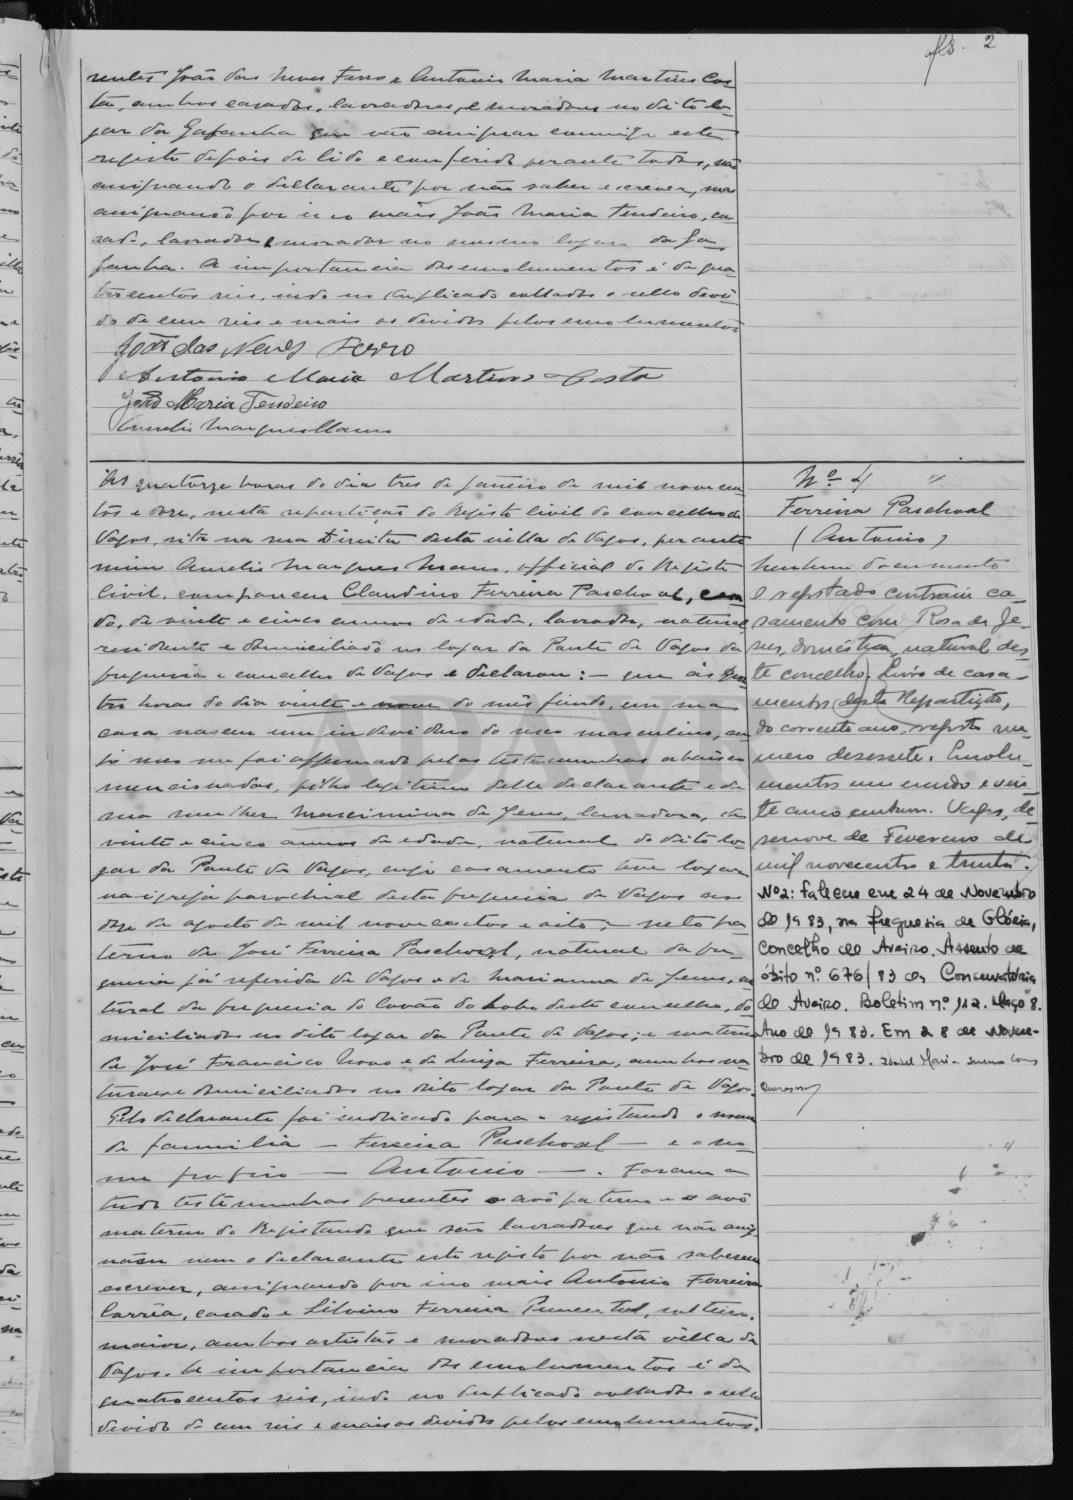 fls. 2
rentes João das Neves Ferro e Antonio Maria Martins Cos-
ta, ambos casados, lavradores, e moradores no dito lo-
gar da Gafanha que vão assignar commigo este
registo depois de lido e conferido perante todos, não
assignando o declarante por não saber escrever, mas
assignando por isso mais João Maria Tendeiro, ca-
sado, lavrador e morador no mesmo logar da Ga-
fanha. A importancia dos emolumentos é de qua-
trocentos reis, indo no duplicado collados o sello devi-
do de cem reis e mais os devidos pelos emolumentos
João das Neves Ferro
Antonio Maria Martins Costa
João Maria Tendeiro
Aurelio Marques Mano
Ás quatorze horas do dia tres de janeiro de mil novecen-
tos e doze, nesta repartição do Registo civil do concelho de
Vagos, sita na rua Direita desta villa de Vagos, perante
mim Aurelio Marques Mano, official do Registo
Civil, compareceu Claudino Ferreira Paschoal, casa-
do, de vinte e cinco annos de edade, lavrador, natural
residente e domiciliado no logar da Ponte de Vagos da
freguesia e concelho de Vagos e declarou: — que ás qua-
tro horas do dia vinte e nove do mês findo, em sua
casa nasceu um individuo do sexo masculino, cu-
jo sexo me foi affirmado pelas testemunhas abaixo
mencionadas, filho legitimo delle declarante e de
sua mulher Maximina de Jesus, lavradora, de
vinte e cinco annos de edade, natural do dito lo-
gar da Ponte de Vagos, cujo casamento teve logar
na igreja parochial desta freguesia de Vagos aos
doze de agosto de mil novecentos e oito; — neto pa-
terno de José Ferreira Paschoal, natural da fre-
guesia já referida de Vagos e de Marianna de Jesus, na-
tural da freguesia do Covão do Lobo deste concelho, do-
miciliados no dito logar da Ponte de Vagos; e materno
de José Francisco Novo e de Luiza Ferreira, ambos na-
turaes e domiciliados no dito logar da Ponte de Vagos.
Pelo declarante foi indicado para o registando o nome
de familia — Ferreira Paschoal — e o no-
me proprio — Antonio —. Foram a
tudo testemunhas presentes o avô paterno e o avô
materno do Registando que são lavradores que não assig-
nam nem o declarante este registo por não saberem
escrever, assignando por isso mais Antonio Ferreira
Corrêa, casado e Silvino Ferreira Pimentel, solteiro,
maior, ambos artistas e moradores nesta villa de
Vagos. A importancia dos emolumentos é de
quatrocentos reis, indo no duplicado collados o sello
devido de cem reis e mais os devidos pelos emolumentos.
Nº 4
Ferreira Paschoal
(Antonio)
Nenhum documento
O registado contraiu ca-
samento com Rosa de Je-
sus, doméstica, natural des-
te concelho. Livro de casa-
mentos desta Repartição,
do corrente ano, registo nu-
mero desessete. Emolu-
mentos um escudo e vin-
te cinco centavos. Vagos, de-
senove de Fevereiro de
mil novecentos e trinta.
Nº2: Faleceu em 24 de Novembro
de 1983, na freguesia de Glória,
Concelho de Aveiro. Assento de
óbito nº 676/83 da Conservatória
de Aveiro. Boletim nº 112. Maço 8.
Ano de 1983. Em 28 de Novem-
bro de 1983.
ADAVR